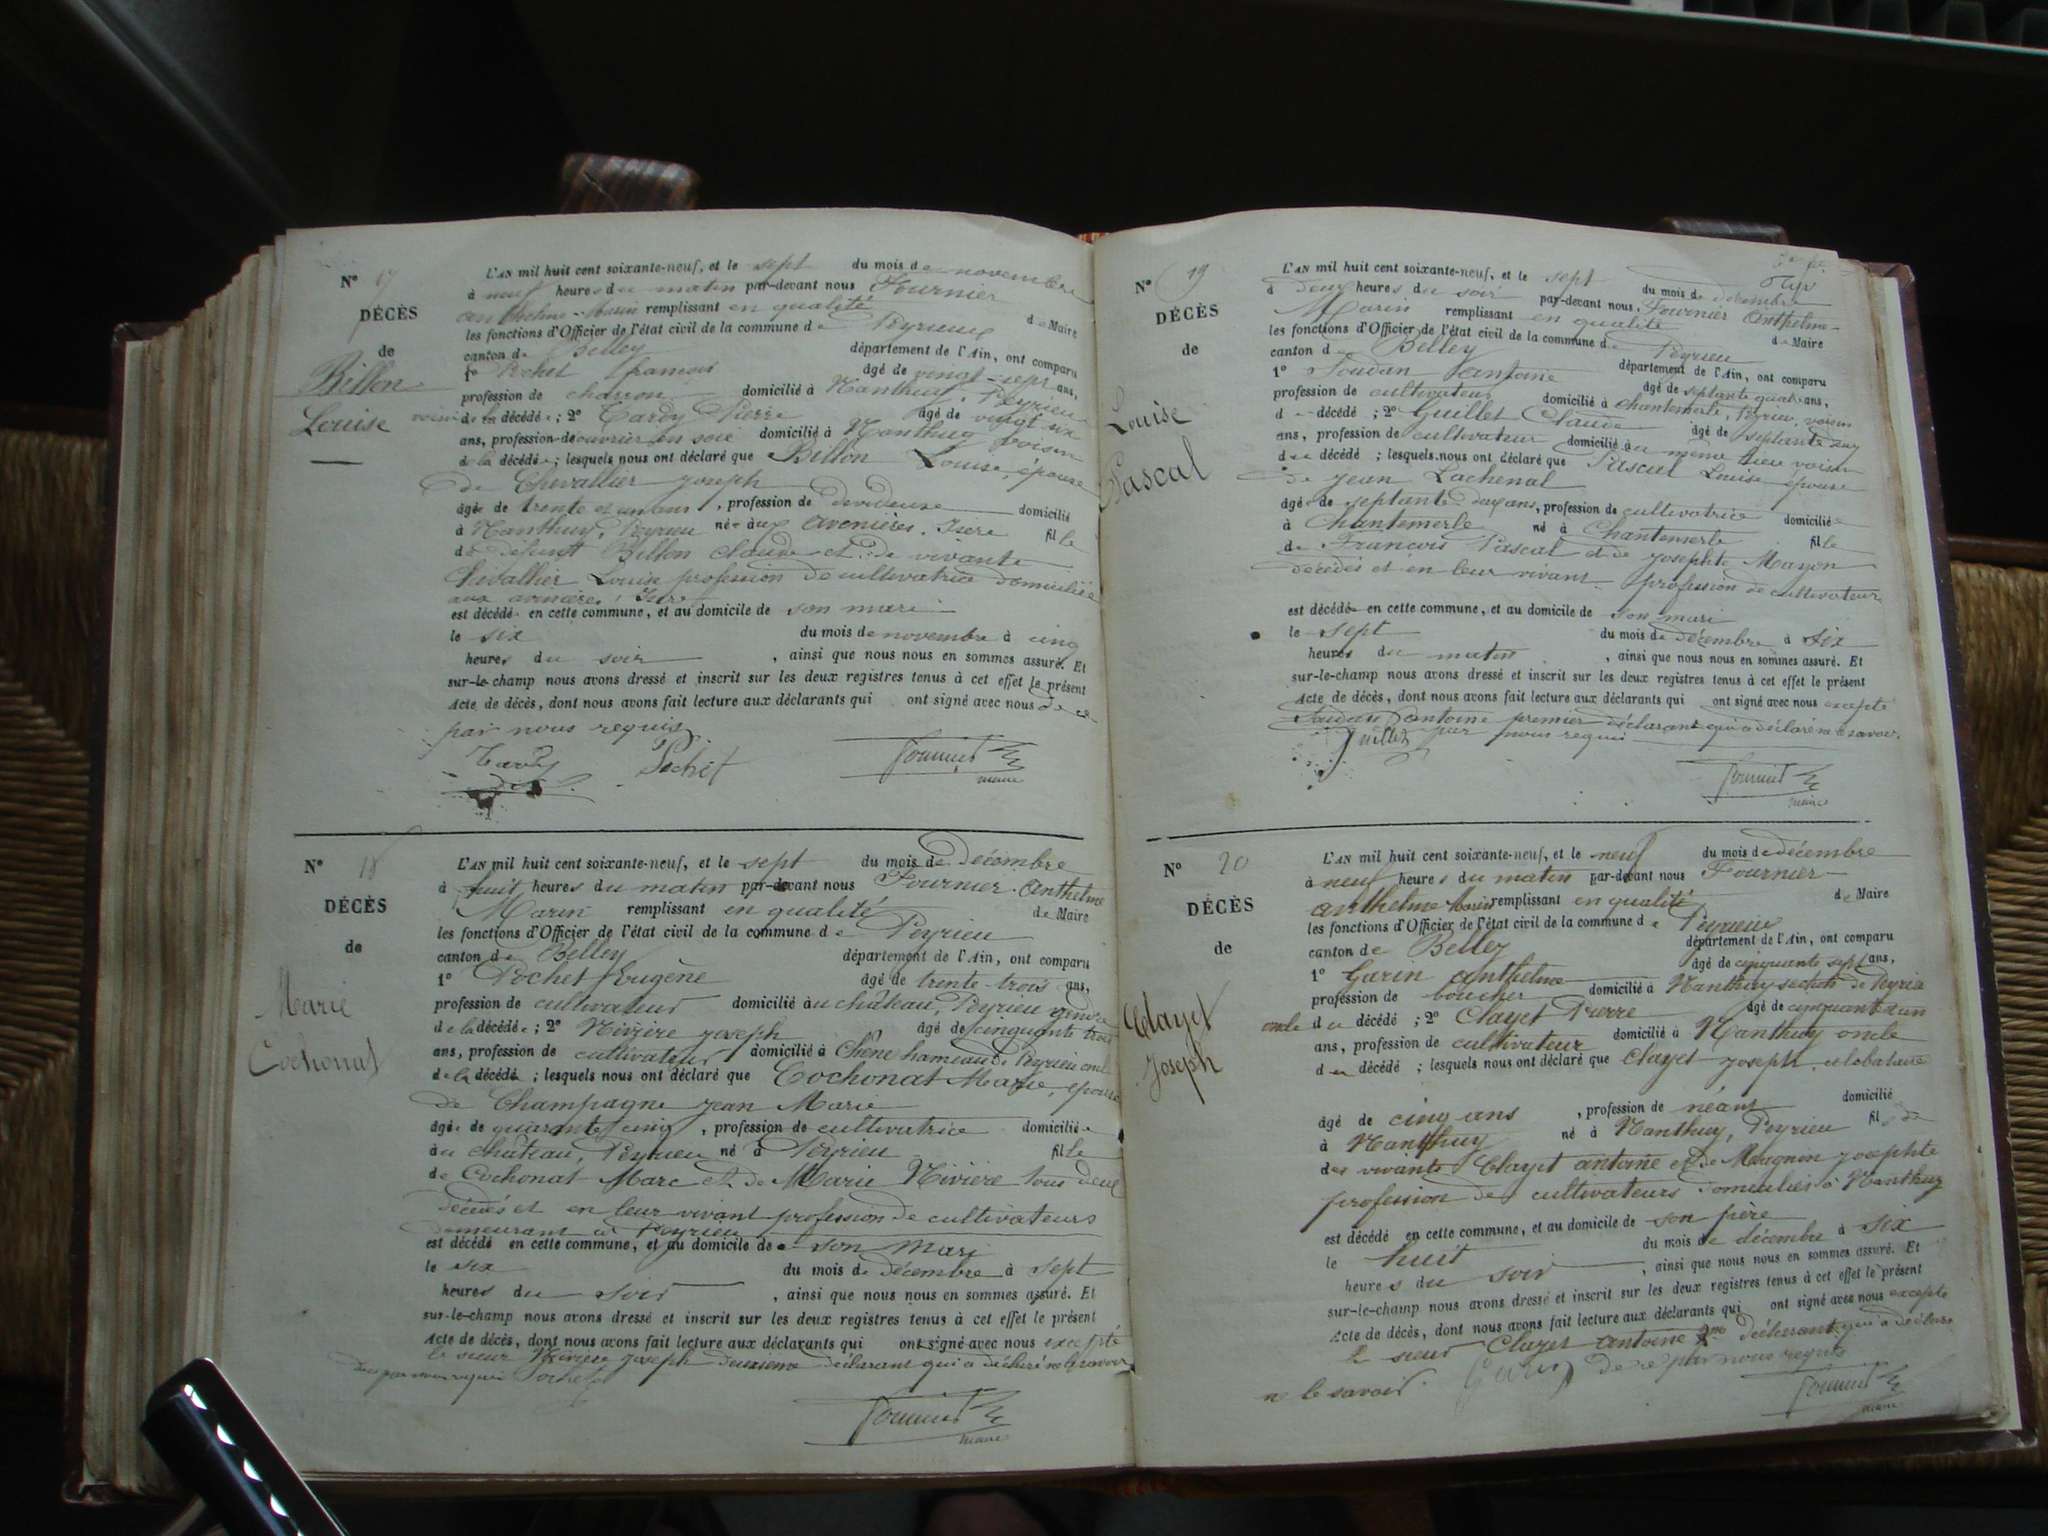 N° 17
DÉCÈS
de
Billon
Louise
L'AN mil huit cent soixante-neuf, et le sept du mois de novembre
à neuf heures du matin par-devant nous Fournier
anthelme Marin remplissant en qualité de Maire
les fonctions d'Officier de l'état civil de la commune de Peyrieu
canton de Belley département de l'Ain, ont comparu
1° Pochet françois âgé de vingt-sept ans,
profession de charron domicilié à Nanthuy, Peyrieu
voisin de la décédée; 2° Tardy Pierre âgé de vingt six
ans, profession d'ouvrier en soie domicilié à Nanthuy voisin
de la décédée; lesquels nous ont déclaré que Billon Louise, épouse
de Chevallier joseph
âgée de trente et un ans, profession de devideuse domicilié
à Nanthuy, Peyrieu née aux avenières, Isère fille
de défunt Billon claude et de vivante
Chevallier Louise profession de cultivatrice domiciliée
aux avenières, Isère
est décédée en cette commune, et au domicile de son mari
le six du mois de novembre à cinq
heures du soir, ainsi que nous nous en sommes assuré. Et
sur-le-champ nous avons dressé et inscrit sur les deux registres tenus à cet effet le présent
Acte de décès, dont nous avons fait lecture aux déclarants qui ont signé avec nous de ce
par nous requis
Tardy Pochet Fournier
maire
N° 18
DÉCÈS
de
Marie
Cochonat
L'AN mil huit cent soixante-neuf, et le sept du mois de Décembre
à huit heures du matin par-devant nous Fournier Anthelme
Marin remplissant en qualité de Maire
les fonctions d'Officier de l'état civil de la commune de Peyrieu
canton de Belley département de l'Ain, ont comparu
1° Pochet Eugène âgé de trente-trois ans,
profession de cultivateur domicilié au château, Peyrieu gendre
de la décédée; 2° Rivière joseph âgé de cinquante trois
ans, profession de cultivateur domicilié à Chêne hameau de Peyrieu
de la décédée; lesquels nous ont déclaré que Cochonat Marie, épouse
de Champagne jean Marie
âgée de quarante cinq, profession de cultivatrice domiciliée
au château, Peyrieu né à Peyrieu fille
de Cochonat Marc et de Marie Rivière tous deux
décédés et en leur vivant profession de cultivateurs
demeurant à Peyrieu
est décédé en cette commune, et au domicile de son mari
le six du mois de décembre à sept
heures du soir, ainsi que nous nous en sommes assuré. Et
sur-le-champ nous avons dressé et inscrit sur les deux registres tenus à cet effet le présent
Acte de décès, dont nous avons fait lecture aux déclarants qui ont signé avec nous excepté
le sieur Rivière joseph deuxième déclarant qui a déclaré ne le savoir
par nous requis Pochet
Fournier
maire
N° 19
DÉCÈS
de
Louise
Pascal
L'AN mil huit cent soixante-neuf, et le sept du mois de décembre
à deux heures du soir par-devant nous Fournier Anthelme
Marin remplissant en qualité de Maire
les fonctions d'Officier de l'état civil de la commune de Peyrieu
canton de Belley département de l'Ain, ont comparu
1° Soudan antoine âgé de septante quatre ans,
profession de cultivateur domicilié à chantemerle, Peyrieu, voisin
de décédé; 2° Guillet Claude âgé de septante deux
ans, profession de cultivateur domicilié au même lieu voisin
de décédé; lesquels nous ont déclaré que Pascal Louise épouse
de jean Lachenal
âgée de septante deux ans, profession de cultivatrice domiciliée
à Chantemerle né à Chantemerle fille
de François Pascal et de josephte Mayon
décédés et en leur vivant profession de cultivateur
est décédé en cette commune, et au domicile de son mari
le sept du mois de décembre à six
heures du matin, ainsi que nous nous en sommes assuré. Et
sur-le-champ nous avons dressé et inscrit sur les deux registres tenus à cet effet le présent
Acte de décès, dont nous avons fait lecture aux déclarants qui ont signé avec nous excepté
Soudan antoine premier déclarant qui a déclaré ne le savoir.
Guillet par nous requis
Fournier
maire
N° 20
DÉCÈS
de
Clayet
Joseph
L'AN mil huit cent soixante-neuf, et le neuf du mois de décembre
à neuf heures du matin par-devant nous Fournier
anthelme Marin remplissant en qualité de Maire
les fonctions d'Officier de l'état civil de la commune de Peyrieu
canton de Belley département de l'Ain, ont comparu
1° Garin anthelme âgé de cinquante sept ans,
profession de boucher domicilié à Nanthuy section de Peyrieu
oncle du décédé; 2° Clayet Pierre âgé de cinquante un
ans, profession de cultivateur domicilié à Nanthuy oncle
du décédé; lesquels nous ont déclaré que Clayet joseph, célobataire
âgé de cinq ans, profession de néant domicilié
à Nanthuy né à Nanthuy, Peyrieu fils
des vivants Clayet antoine et de Magnin josephte
profession de cultivateurs domiciliés à Nanthuy
est décédé en cette commune, et au domicile de son père
le huit du mois de décembre à six
heures du soir, ainsi que nous nous en sommes assuré. Et
sur-le-champ nous avons dressé et inscrit sur les deux registres tenus à cet effet le présent
Acte de décès, dont nous avons fait lecture aux déclarants qui ont signé avec nous excepté
le sieur Clayet antoine 2me déclarant qui a déclaré
ne le savoir. Garin de ce par nous requis
Fournier
maire